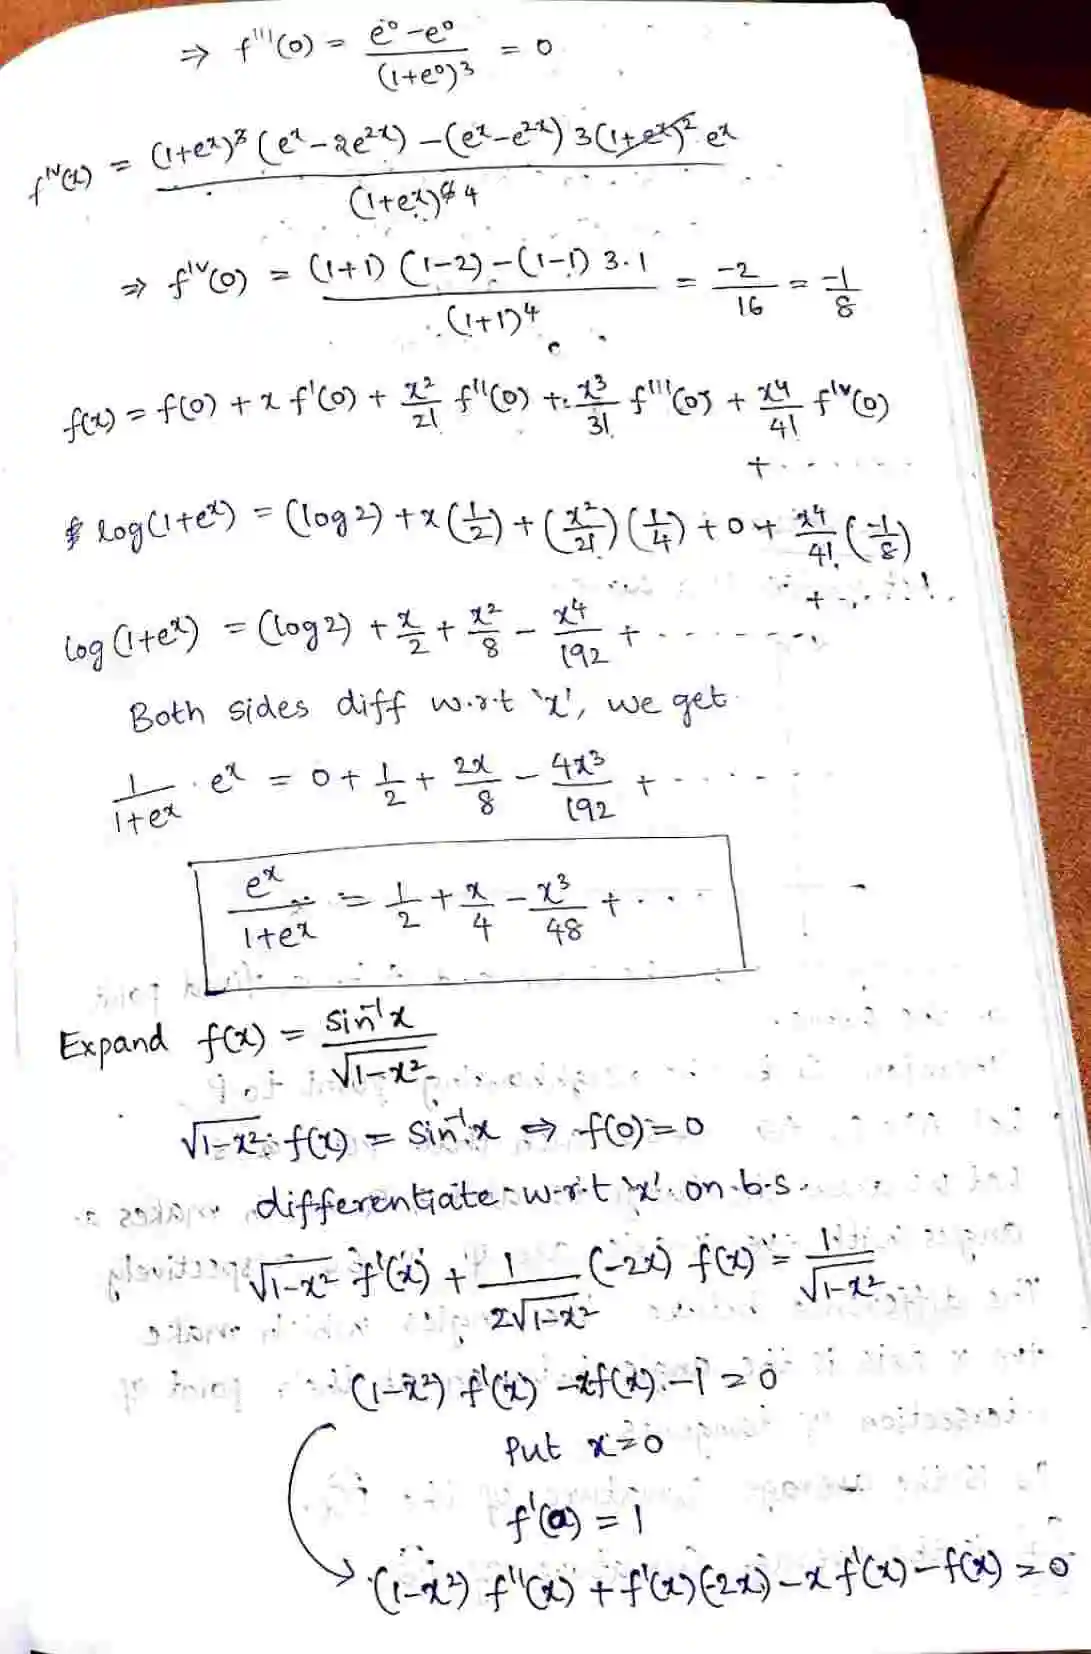 ⇒ f'''(0) = (e⁰-e⁰)/(1+e⁰)³ = 0
f^{IV}(x) = ((1+eˣ)³ (eˣ-2e²ˣ) - (eˣ-e²ˣ) 3(1+eˣ)² eˣ)/(1+eˣ)⁴
⇒ f^{IV}(0) = ((1+1) (1-2) - (1-1) 3·1)/(1+1)⁴ = -2/16 = -1/8
f(x) = f(0) + x f'(0) + x²/2! f''(0) + x³/3! f'''(0) + x⁴/4! f^{IV}(0)
+ ......
log(1+eˣ) = (log 2) + x (1/2) + (x²/2!) (1/4) + 0 + x⁴/4! (-1/8)
+ ......
log (1+eˣ) = (log 2) + x/2 + x²/8 - x⁴/192 + .......
Both sides diff w.r.t 'x', we get
1/(1+eˣ) · eˣ = 0 + 1/2 + 2x/8 - 4x³/192 + ......
eˣ/(1+eˣ) = 1/2 + x/4 - x³/48 + ...
Expand f(x) = sin⁻¹x/√(1-x²)
√(1-x²) f(x) = sin⁻¹x ⇒ f(0) = 0
differentiate w.r.t 'x' on b.s.
√(1-x²) f'(x) + 1/(2√(1-x²)) (-2x) f(x) = 1/√(1-x²)
(1-x²) f'(x) - xf(x) - 1 = 0
Put x=0
f'(0) = 1
(1-x²) f''(x) + f'(x)(-2x) - x f'(x) - f(x) = 0